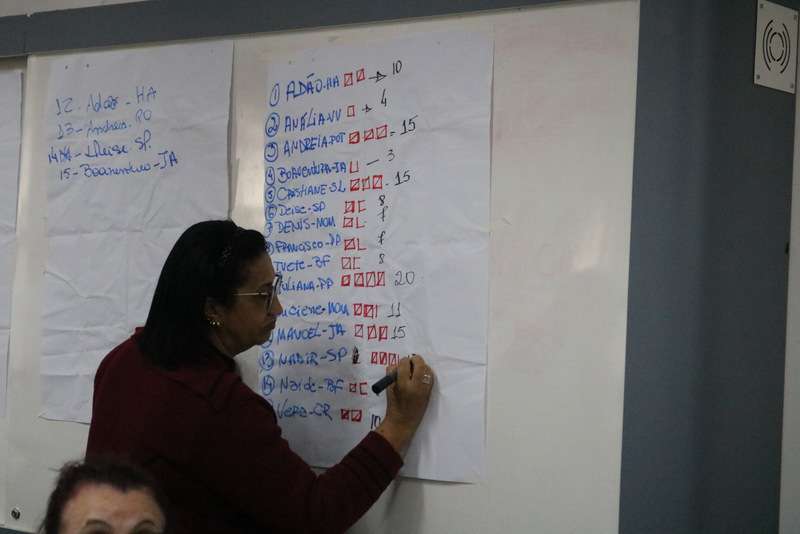 12. Adão - HA
13 - Andreia. PO
14 Deise. SP.
15 - Boaventura - JA
1 ADÃO-HA → 10
2 ANÁLIA-VV → 4
3 ANDREIA-POT - 15
4 BOAVENTURA-JA — 3
5 CRISTIANE-SL - 15
6 Deise-SP 8
7 DENIS-MOM 7
8 FRANCISCO-PP 7
Ivete-BF 8
JULIANA-PP 20
Luciene-MOM 11
MANOEL-JA 15
13 NADIR-SP
14 Naide-BF
Vera-CR 10